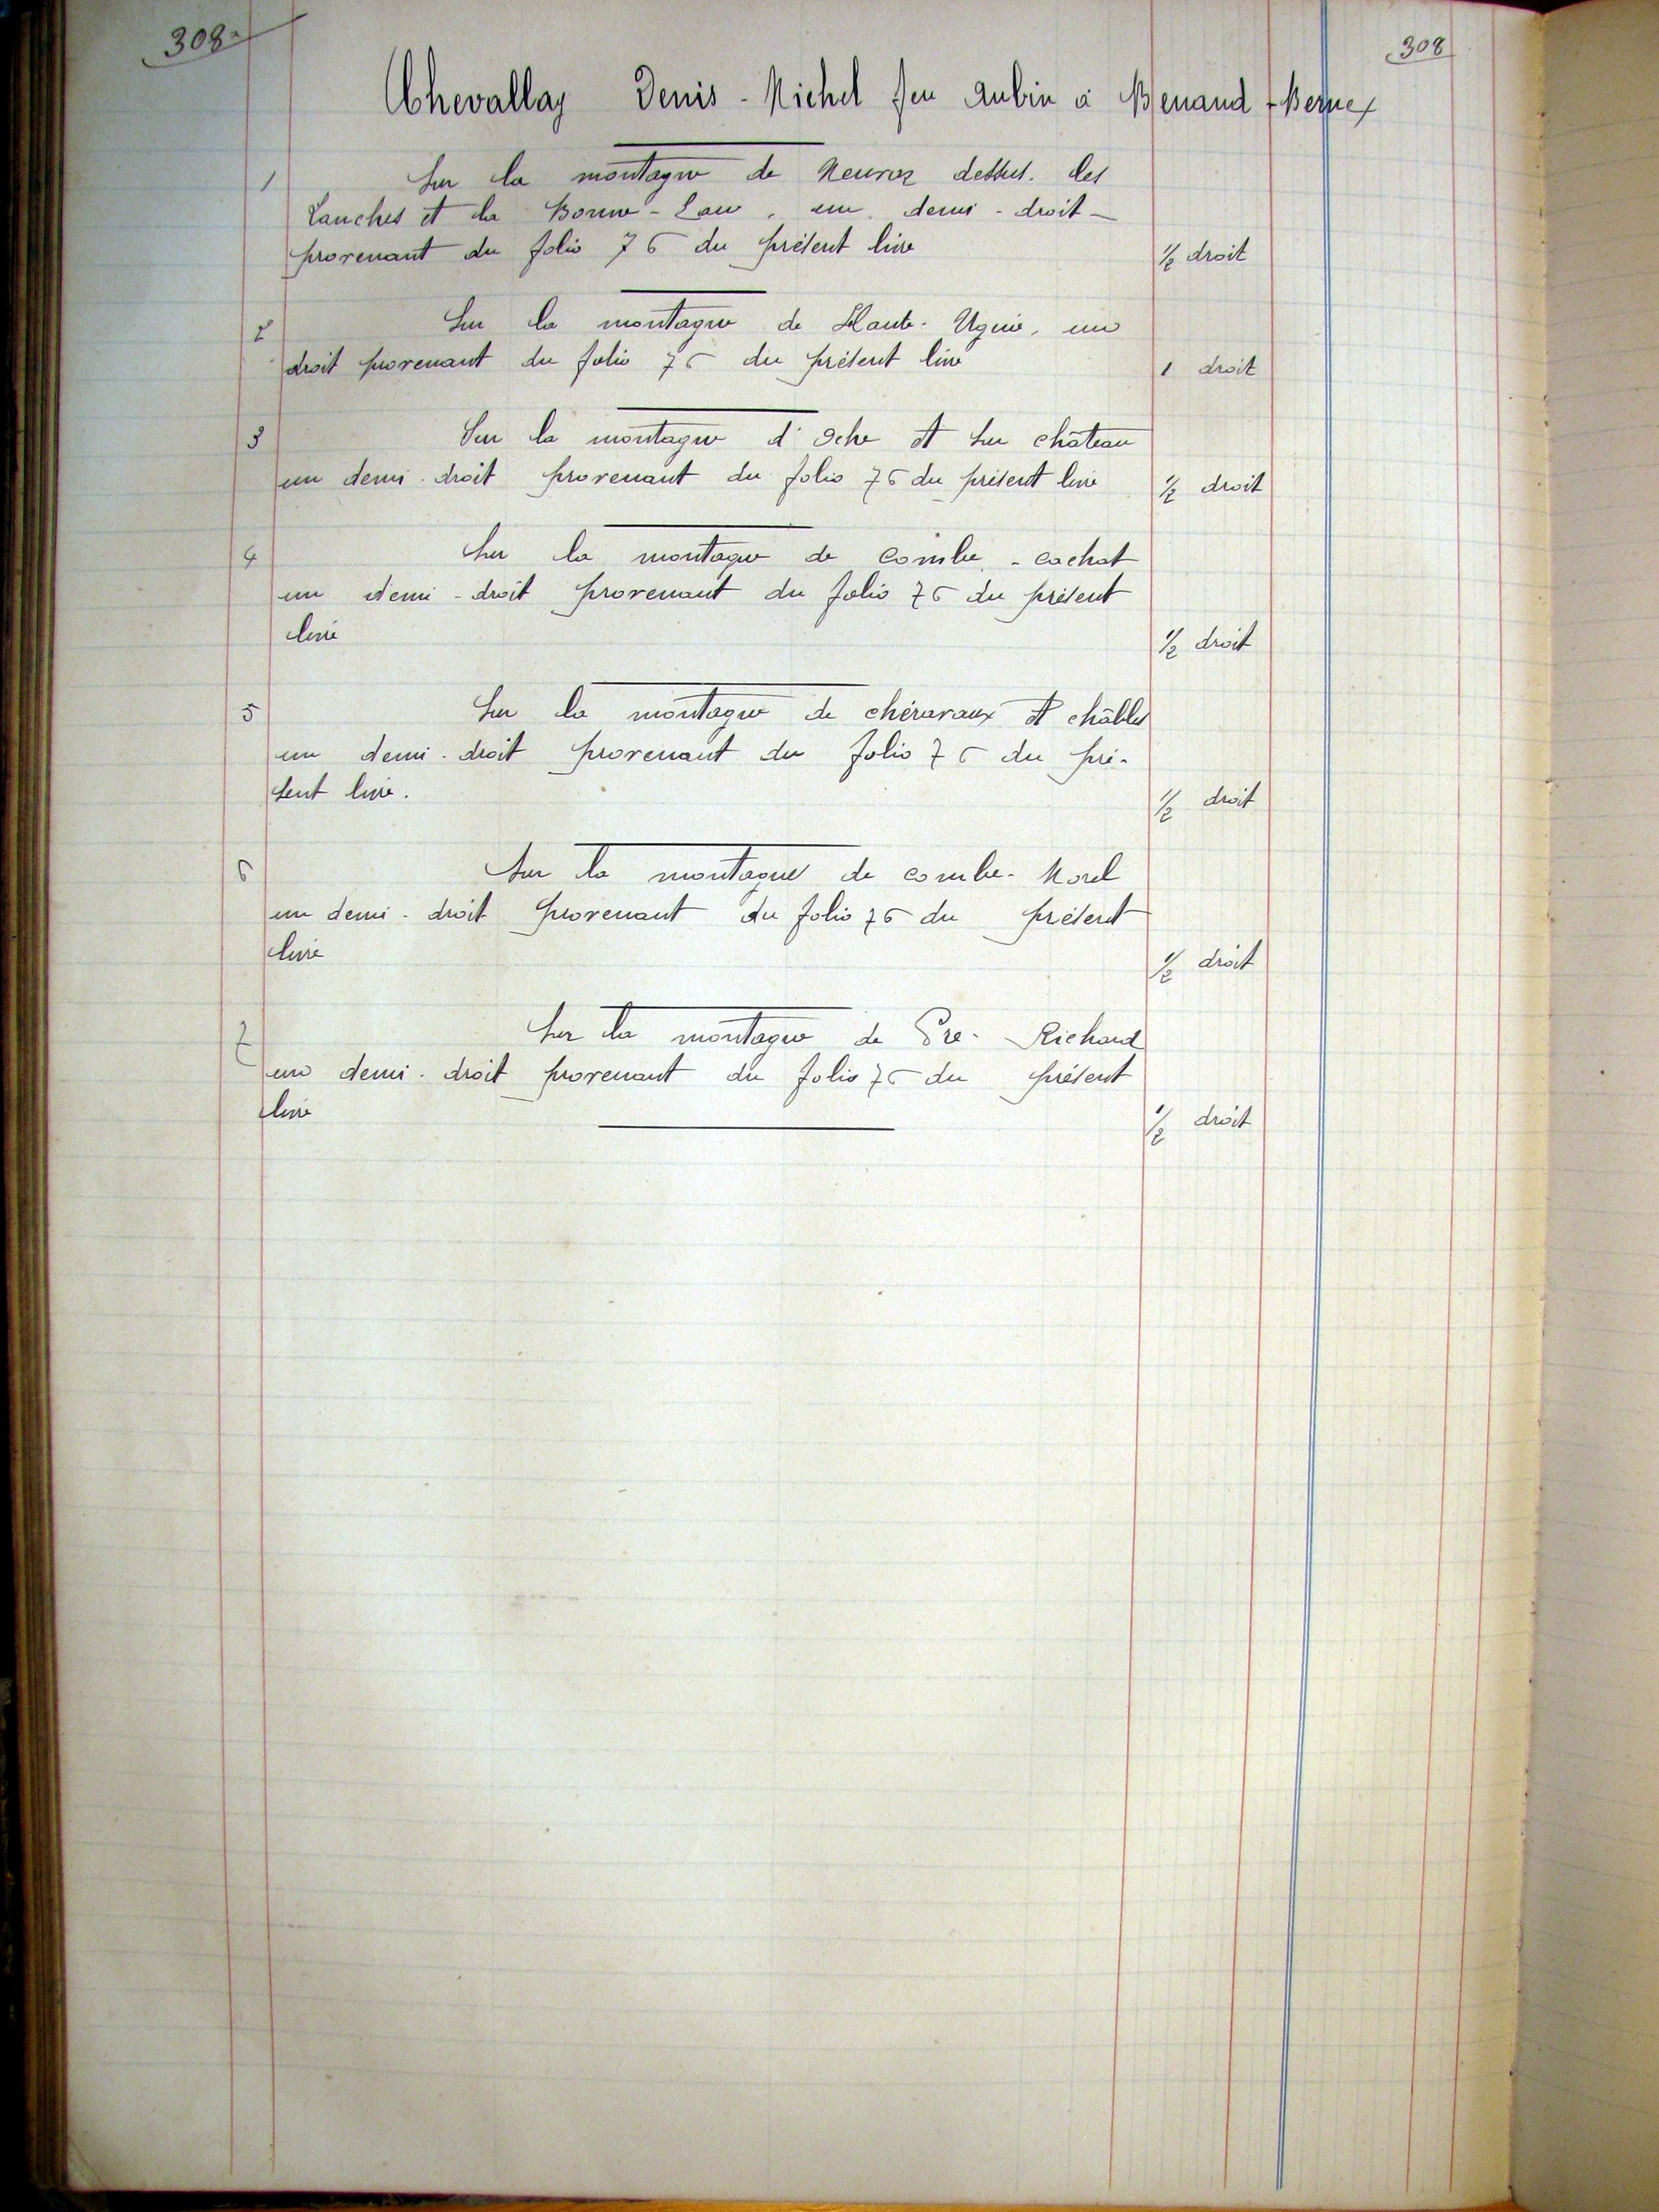 308
308
Chevallay Denis - Michel feu Aubin à Benand - Bernex
1 Sur la montagne de Neuvaz dessus. les
Lanches et la Bonne - Eau, un demi - droit -
provenant du folio 76 du présent livre 1/2 droit
2 Sur la montagne de Haute - Ugine, un
droit provenant du folio 76 du présent livre 1 droit
3 Sur la montagne d'Oche et sur château
un demi - droit provenant du folio 76 du présent livre 1/2 droit
4 Sur la montagne de Combe - Cachat
un demi - droit provenant du folio 76 du présent
livre 1/2 droit
5 Sur la montagne de chéravaux et châbles
un demi - droit provenant du folio 76 du pré-
sent livre. 1/2 droit
6 Sur la montagne de combe - Morel
un demi - droit provenant du folio 76 du présent
livre 1/2 droit
7 Sur la montagne de Pré - Richard
un demi - droit provenant du folio 76 du présent
livre 1/2 droit